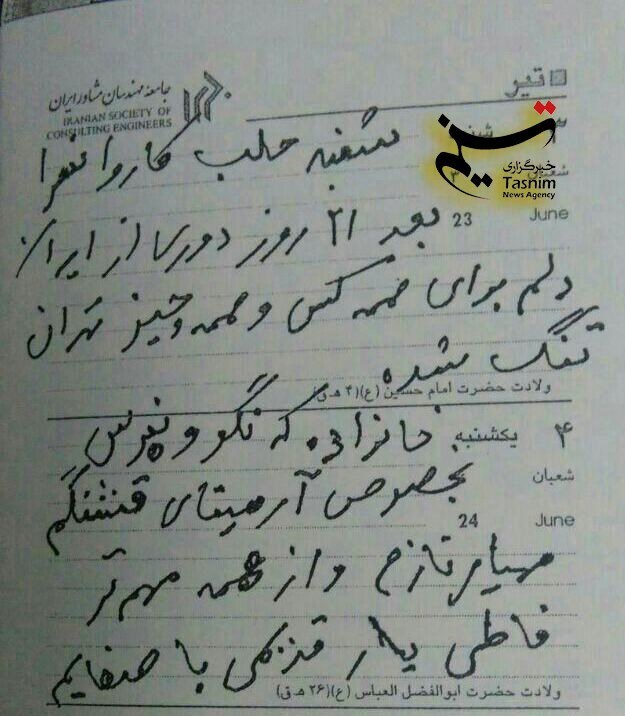 تیر
جامعه مهندسان مشاور ایران
IRANIAN SOCIETY OF
CONSULTING ENGINEERS
تسنیم
خبرگزاری
Tasnim
News Agency
۳
شنبه حلب کاروا نفرا
بعد ۲۱ روز دوری از ایران
23 June
دلم برای همه کس و همه چیز تهران
تنگ شده
ولادت حضرت امام حسین (ع) (۴ ه‍.ق)
۴ یکشنبه
خانواده که نگو و نپرس
شعبان
بخصوص آرمیتای قشنگم
24 June
مهیار نازم و از همه مهم تر
فاطی یار قدیمی با صفایم
ولادت حضرت ابوالفضل العباس (ع) (۲۶ ه‍.ق)